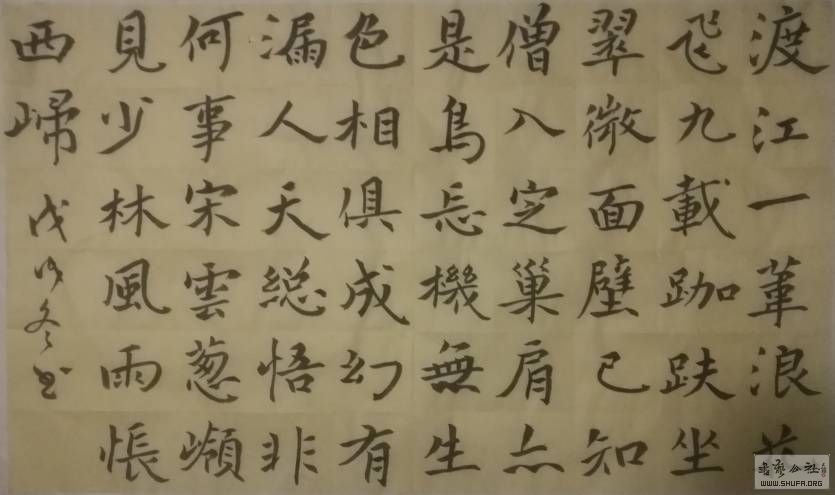 渡江一葦浪
飞九載跏趺坐
翠微面壁已知
僧入定巢肩亦
是鳥忘機無生
色相俱成幻有
漏人天総悟非
何事宋雲葱嶺
見少林風雨悵
西歸
戊戌冬书
WWW.SHUFA.ORG